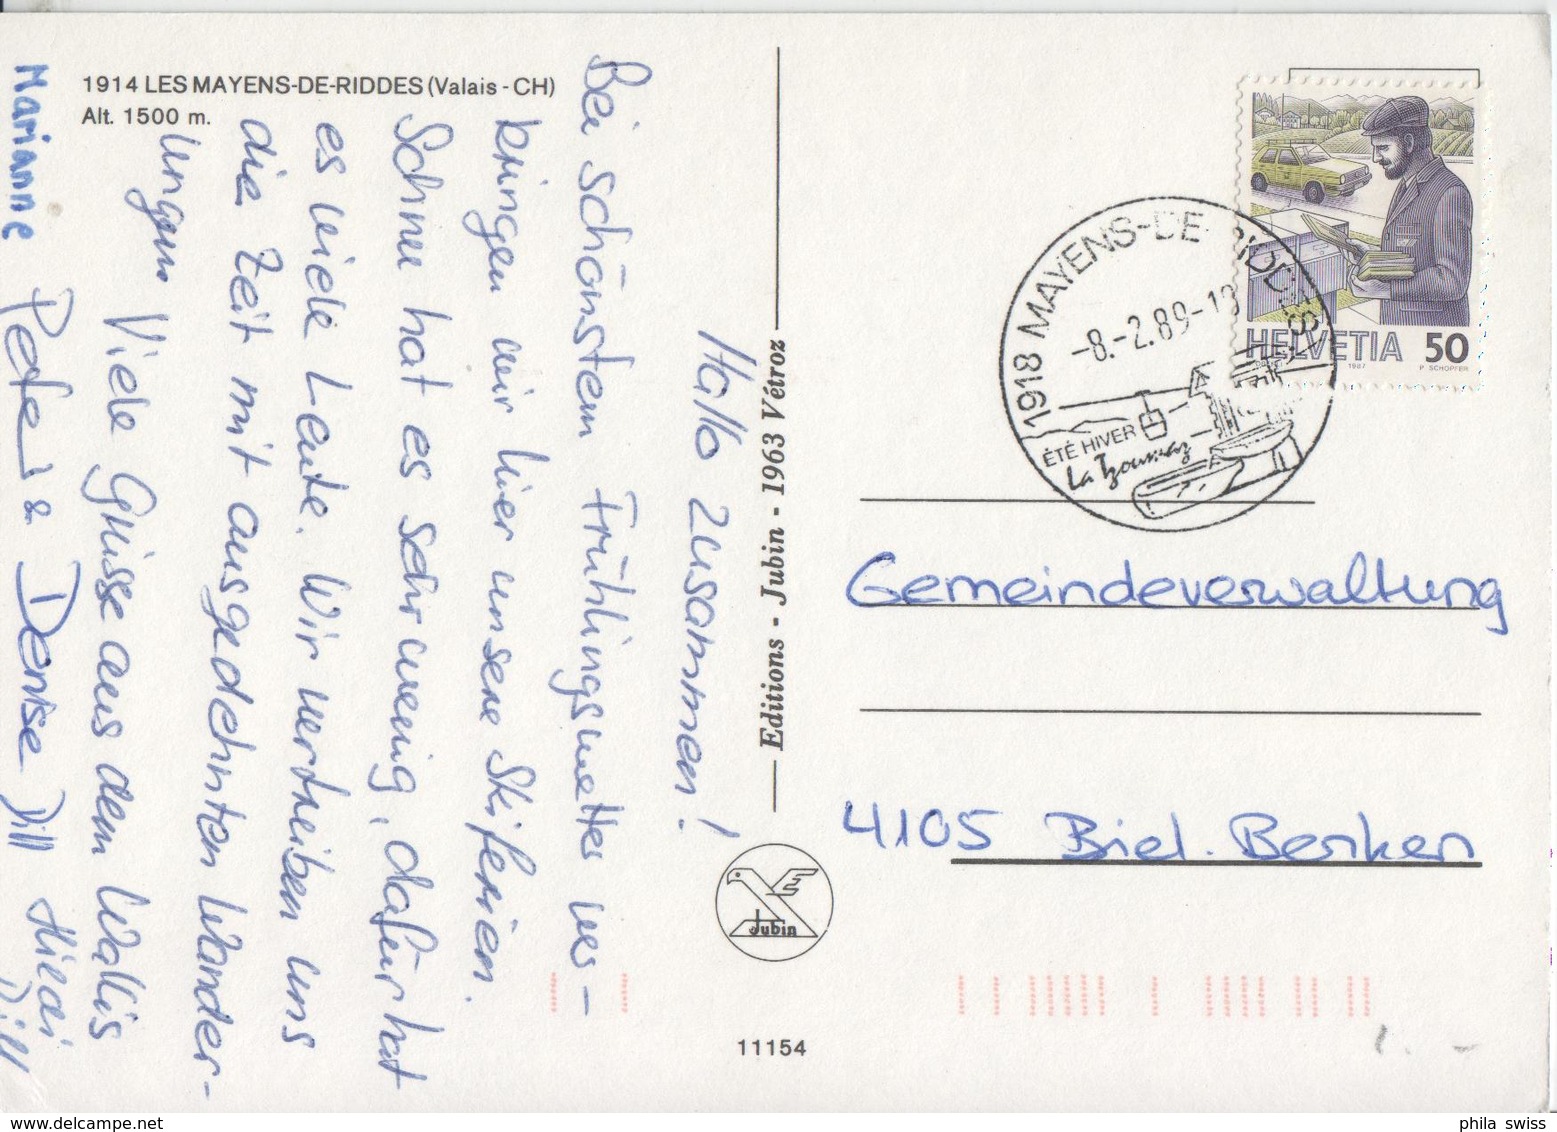 1914 LES MAYENS-DE-RIDDES (Valais - CH)
Alt. 1500 m.
Hallo zusammen!
Bei schönstem Frühlingswetter ver-
bringen wir hier unsere Skiferien.
Schnee hat es sehr wenig, dafür hat
es viele Leute. Wir vertreiben uns
die Zeit mit ausgedehnten Wander-
ungen
Viele Grüsse aus dem Wallis
Peter & Denise Dill
Marianne
Dill
Editions - Jubin - 1963 Vétroz
Jubin
11154
1918 MAYENS-DE-RIDDES
-8.-2.89-18
ÉTÉ HIVER
La Tzoumaz
HELVETIA 50
1987 P. SCHOPFER
Gemeindeverwaltung
4105 Biel-Benken
phila swiss